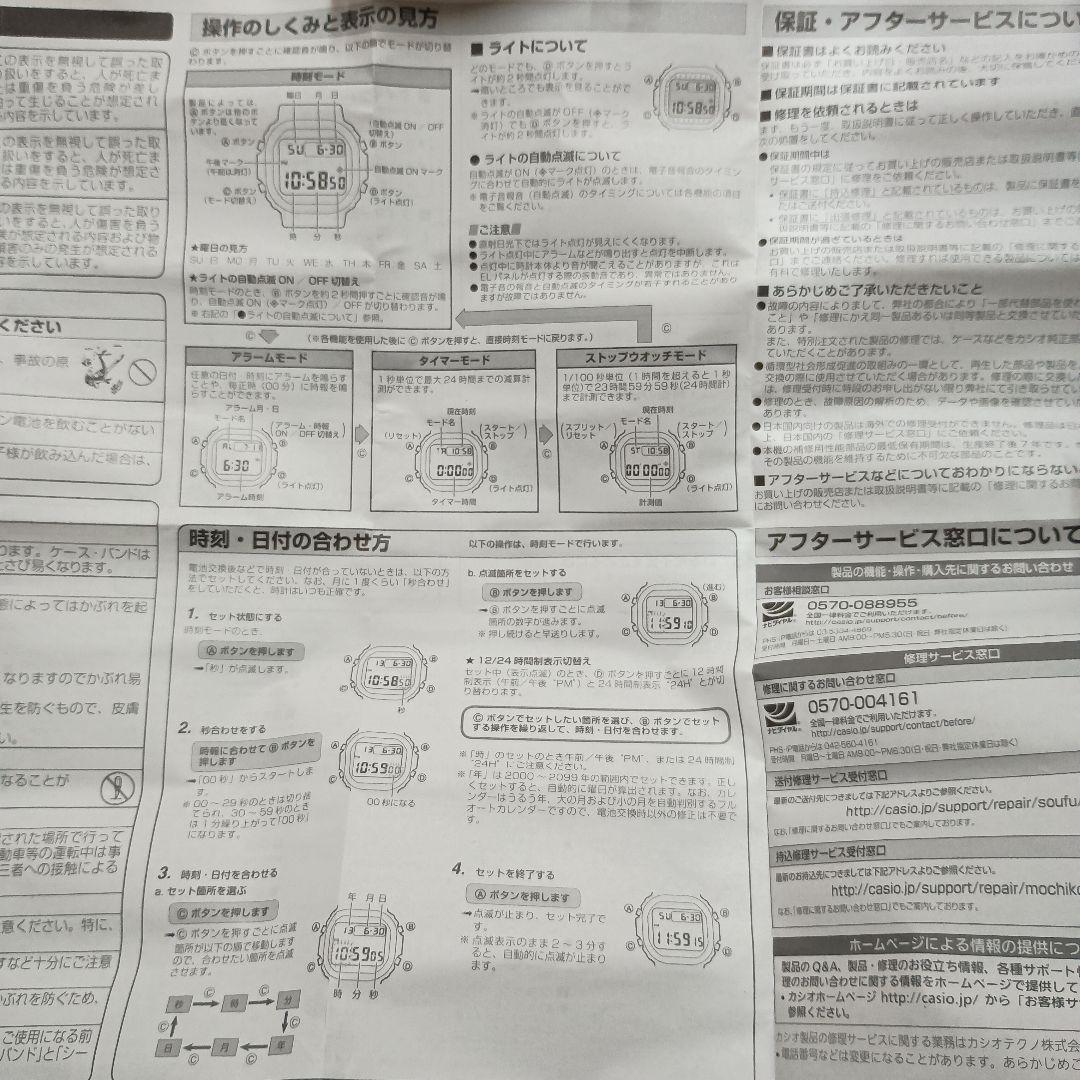 の表示を無視して誤った取
扱いをすると、人が死亡ま
は重傷を負う危険が差し
って生じることが想定され
内容を示しています。
の表示を無視して誤った取
扱いをすると、人が死亡ま
は重傷を負う危険が想定さ
る内容を示しています。
の表示を無視して誤った取り
いをすると、人が傷害を負う
が想定される内容および物
損害のみの発生が想定される
容を示しています。
ください
、事故の原
ン電池を飲むことがない
子様が飲み込んだ場合は、
ります。ケース・バンドは
とさび易くなります。
意によってはかぶれを起
なりますのでかぶれ易
生を防ぐもので、皮膚
い。
なることが
された場所で行って
動車等の運転中は事
三者への接触による
意ください。特に、
すなど十分にご注意
かぶれを防ぐため、
ご使用になる前
バンド」と「シー
操作のしくみと表示の見方
Ⓒボタンを押すごとに確認音が鳴り、以下の順でモードが切り替
わります。
時刻モード
製品によっては、
Ⓐボタンは他のボ
タンより低くなって
います。
曜日 月 日
(自動点滅 ON/OFF
切替え)
Ⓐボタン
Ⓑボタン
午後マーク
(午前は消灯)
自動点滅 ON マーク
Ⓒボタン
(モード切替え)
Ⓓボタン
(ライト点灯)
SU 6-30
10:58 50
時 分 秒
★曜日の見方
SU 日 MO 月 TU 火 WE 水 TH 木 FR 金 SA 土
★ライトの自動点滅 ON/OFF 切替え
時刻モードのとき、Ⓑボタンを約2秒間押すごとに確認音が鳴
り、自動点滅 ON(◈マーク点灯)/OFF が切り替わります。
※ 右記の「●ライトの自動点滅について」参照。
■ ライトについて
どのモードでも、Ⓓボタンを押すとラ
イトが約2秒間点灯します。
➞暗いところでも表示を見ることがで
きます。
※ ライトの自動点滅が OFF(◈マーク
消灯)でもⒹボタンを押すと、ラ
イトが約2秒間点灯します。
Ⓐ Ⓑ Ⓒ Ⓓ
SU 6-30
10:58 50
● ライトの自動点滅について
自動点滅が ON(◈マーク点灯)のときは、電子音報音のタイミン
グに合わせて自動的にライトが点滅します。
※ 電子音報音(自動点滅)のタイミングについては各機能の項目
をご覧ください。
ご注意
● 直射日光下ではライト点灯が見えにくくなります。
● ライト点灯中にアラームなどが鳴り出すと点灯を中断します。
● 点灯中に時計本体より音が聞こえることがありますが、これは
ELパネルが点灯する際の振動音であり、異常ではありません。
● 電子音の報音と自動点滅のタイミングが若干ずれることがあり
ますが故障ではありません。
Ⓒ (※各機能を使用した後にⒸボタンを押すと、直接時刻モードに戻ります。) Ⓒ
アラームモード
任意の日付・時刻にアラームを鳴らす
ことや、毎正時(00分)に時報を鳴
らすことができます。
アラーム月・日
モード名
(アラーム・時報
ON/OFF 切替え)
Ⓐ Ⓑ Ⓒ Ⓓ
AL
6:30
(ライト点灯)
アラーム時刻
Ⓒ
タイマーモード
1秒単位で最大24時間までの減算計
測ができます。
現在時刻
モード名
(リセット)
(スタート/
ストップ)
Ⓐ Ⓑ Ⓒ Ⓓ
TR 10:58
0:00 00
(ライト点灯)
タイマー時間
Ⓒ
ストップウオッチモード
1/100秒単位(1時間を超えると1秒
単位)で23時間59分59秒(24時間計)
まで計測できます。
現在時刻
モード名
(スプリット/
リセット)
(スタート/
ストップ)
Ⓐ Ⓑ Ⓒ Ⓓ
ST 10:58
00'00 00
(ライト点灯)
計測値
時刻・日付の合わせ方
以下の操作は、時刻モードで行います。
電池交換後などで時刻・日付が合っていないときは、以下の方
法でセットしてください。なお、月に1度くらい「秒合わせ」
をしていただくと、時計はいつも正確です。
1. セット状態にする
時刻モードのとき、
Ⓐボタンを押します
➞「秒」が点滅します。
Ⓐ Ⓑ Ⓒ Ⓓ
13 6-30
10:58 50
秒
2. 秒合わせをする
時報に合わせてⒷボタンを
押します
➞「00秒」からスタートしま
す。
※ 00~29秒のときは切り捨
てられ、30~59秒のとき
は1分繰り上がって「00秒」
になります。
Ⓐ Ⓑ Ⓒ Ⓓ
13 6-30
10:59 00
00秒になる
3. 時刻・日付を合わせる
a. セット箇所を選ぶ
Ⓒボタンを押します
➞Ⓒボタンを押すごとに点滅
箇所が以下の順で移動します
ので、合わせたい箇所を点滅
させます。
年 月 日
Ⓐ Ⓑ Ⓒ Ⓓ
13 6-30
10:59 05
時 分 秒
秒 Ⓒ 時 Ⓒ 分
Ⓒ Ⓒ
日 Ⓒ 月 Ⓒ 年
b. 点滅箇所をセットする
Ⓑボタンを押します
➞Ⓑボタンを押すごとに点滅
箇所の数字が進みます。
※ 押し続けると早送りします。
(進む)
Ⓐ Ⓑ Ⓒ Ⓓ
13 6-30
11:59 10
★ 12/24時間制表示切替え
セット中(表示点滅)のとき、Ⓓボタンを押すごとに12時間
制表示(午前/午後 "PM")と24時間制表示 "24H" とが切
り替わります。
Ⓒボタンでセットしたい箇所を選び、Ⓑボタンでセット
する操作を繰り返して、時刻・日付を合わせます。
※「時」のセットのとき午前/午後 "PM"、または24時間制
"24H" にご注意ください。
※「年」は2000~2099年の範囲内でセットできます。正し
くセットすると、自動的に曜日が算出されます。なお、カレ
ンダーはうるう年、大の月および小の月を自動判別するフル
オートカレンダーですので、電池交換時以外の修正は不要で
す。
4. セットを終了する
Ⓐボタンを押します
➞点滅が止まり、セット完了で
す。
※ 点滅表示のまま2~3分す
ると、自動的に点滅が止まり
ます。
Ⓐ Ⓑ Ⓒ Ⓓ
SU 6-30
11:59 15
保証・アフターサービスについ
■保証書はよくお読みください
■保証期間は保証書に記載されています
■修理を依頼されるときは
まず、もう一度、取扱説明書に従って正しく操作していただき、直
次の処置をしてください。
●保証期間中は
保証書の規定に従ってお買い上げの販売店または取扱説明書等
サービス窓口」に修理をご依頼ください。
・保証書に「持込修理」と記載されているものは、製品に保証書を
たはご送付ください。
・保証書に「出張修理」と記載されているものは、お買い上げの
扱説明書等に記載の「修理に関するお問い合わせ窓口」まで
●保証期間が過ぎているときは
お買い上げの販売店または取扱説明書等に記載の「修理に関する
口」までご連絡ください。修理すれば使用できる製品については
有料で修理いたします。
■あらかじめご了承いただきたいこと
●故障の内容によりまして、弊社の都合により「一部代替部品を使わ
こと」や「修理にかえ同一製品あるいは同等製品と交換させていた
あります。
また、特別注文された製品の修理では、ケースなどをカシオ純正部
ていただくことがあります。
●循環型社会形成促進の取組みの一環として、再生した部品や製品を
交換の際に使用させていただく場合があります。修理の際に交換し
は、修理受付時に特段のお申し出がない限り弊社にて引き取らせてい
●修理のとき、故障原因の解析のため、データや画像を確認させていた
あります。
●日本国内向けの製品は海外での修理受付ができません。修理品は日
上、日本国内の「修理サービス窓口」にご依頼ください。
●本機の補修用性能部品の最低保有期間は、生産終了後7年です。
その製品の機能を維持するために不可欠な部品のことです。
■アフターサービスなどについておわかりにならない
お買い上げの販売店または取扱説明書等に記載の「修理に関するお問
にお問い合わせください。
アフターサービス窓口について
製品の機能・操作・購入先に関するお問い合わせ
お客様相談窓口
ナビダイヤル®
0570-088955
全国一律料金でご利用いただけます。
http://casio.jp/support/contact/before/
PHS・IP電話からは 03-5334-4869
受付時間 月曜日~土曜日 AM9:00~PM5:30(日・祝日・弊社指定休業日は除く)
修理サービス窓口
修理に関するお問い合わせ窓口
ナビダイヤル®
0570-004161
全国一律料金でご利用いただけます。
http://casio.jp/support/contact/before/
PHS・IP電話からは 042-560-4161
受付時間 月曜日~土曜日 AM9:00~PM5:30(日・祝日・弊社指定休業日は除く)
送付修理サービス受付窓口
最新のご送付先につきましては下記アドレスよりご参照ください。
http://casio.jp/support/repair/soufu/
なお、「修理に関するお問い合わせ窓口」でもご案内しております。
持込修理サービス受付窓口
最新のお持込先につきましては下記アドレスよりご参照ください。
http://casio.jp/support/repair/mochiko
なお、「修理に関するお問い合わせ窓口」でもご案内しております。
ホームページによる情報の提供につ
製品のQ&A、製品・修理のお役立ち情報、各種サポート
理のお問い合わせに関する情報をホームページで提供して
・カシオホームページ http://casio.jp/ から「お客様サ
参照ください。
カシオ製品の修理サービスに関する業務はカシオテクノ株式会
・電話番号などは変更になることがあります。あらかじめご